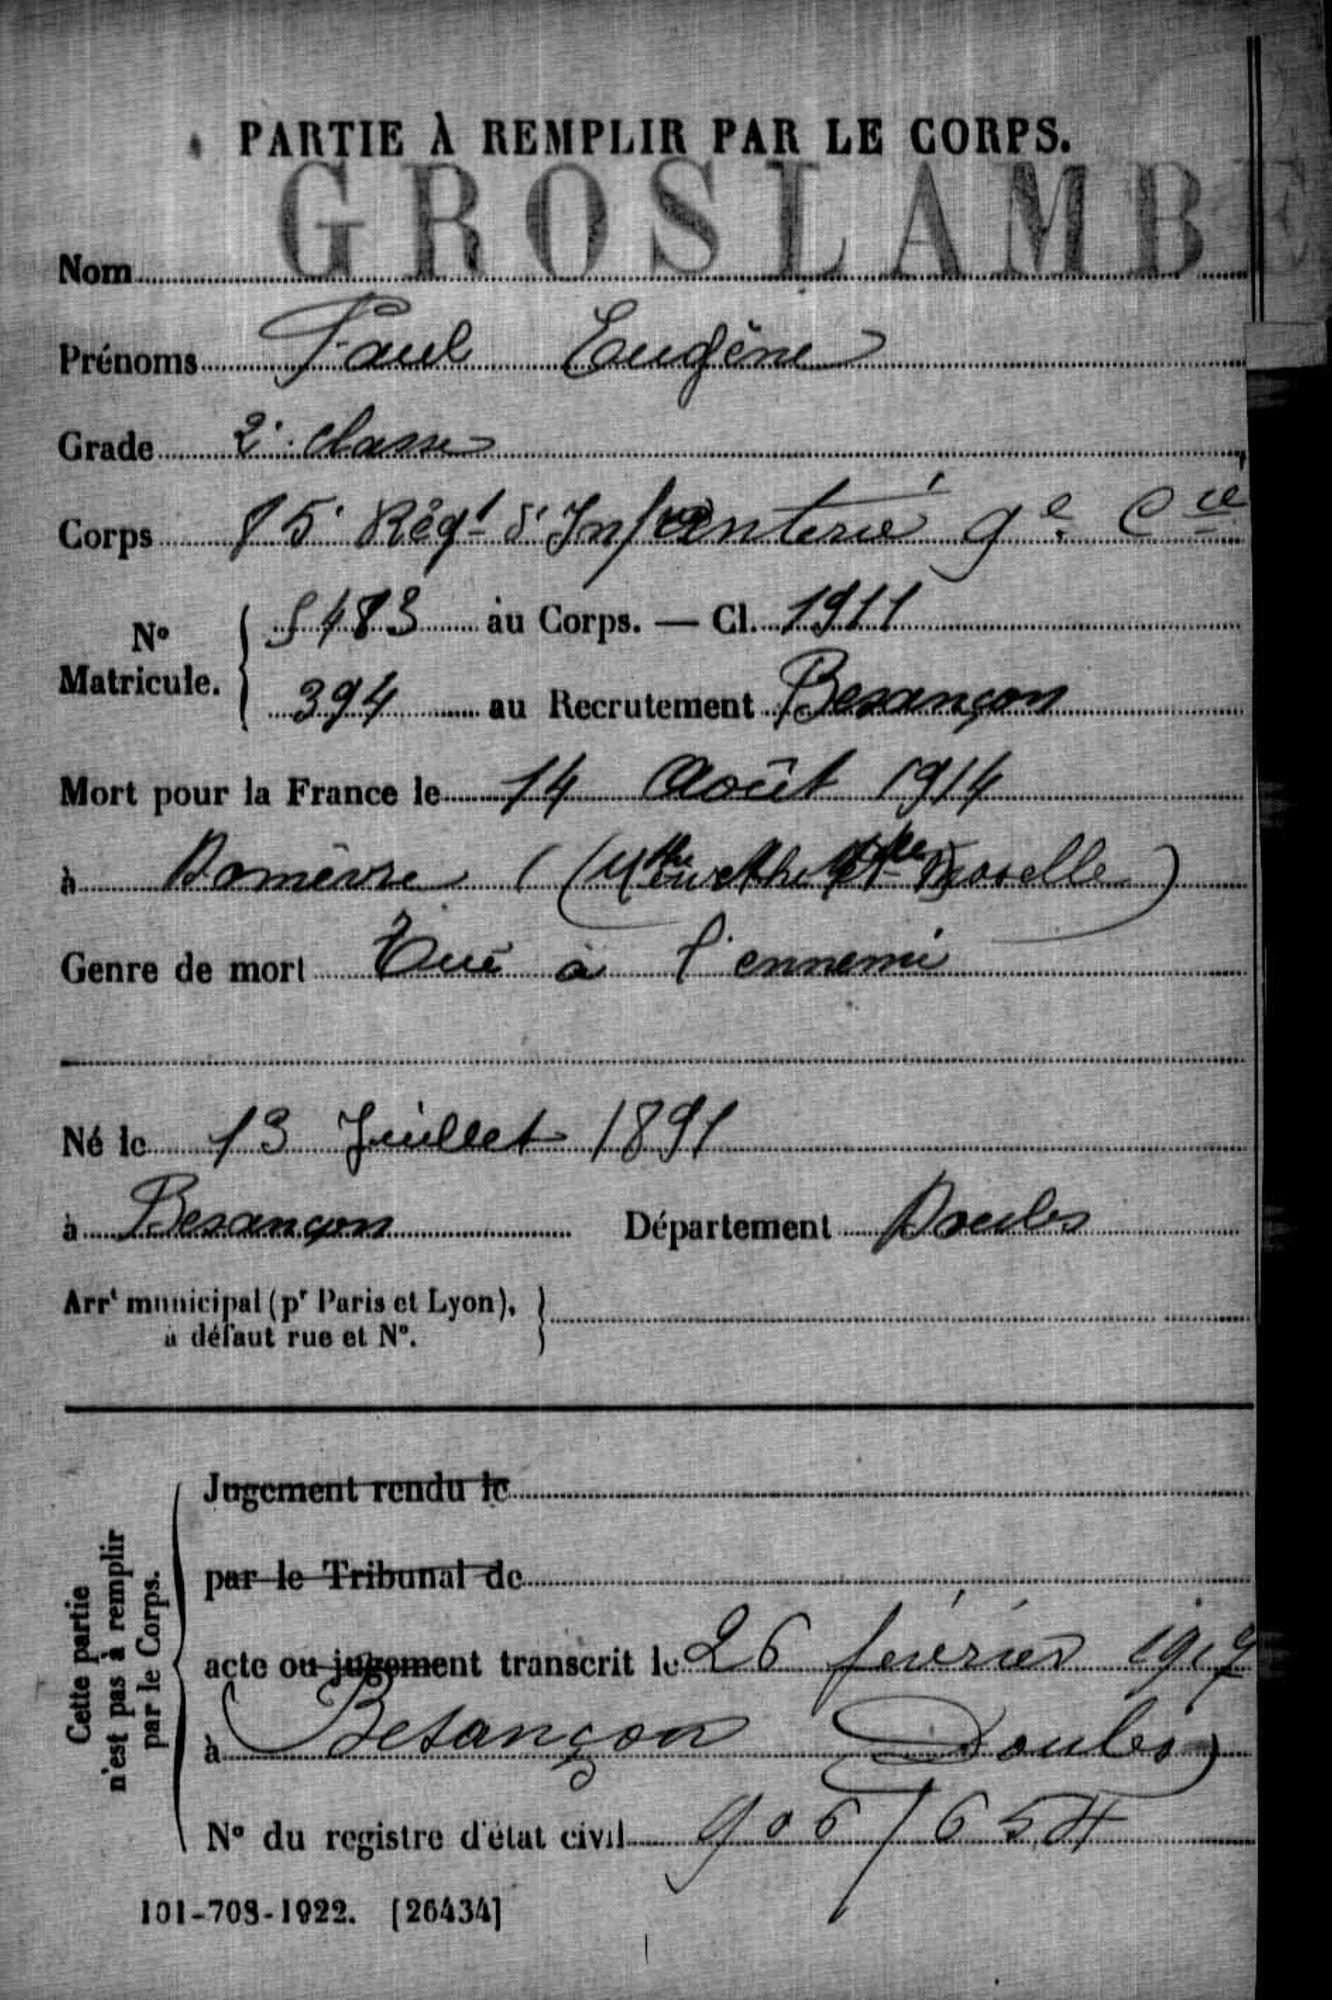 PARTIE À REMPLIR PAR LE CORPS.
GROSLAMBE
Nom
Prénoms Paul Eugène
Grade 2e classe
Corps 85e Régt d'Infanterie 9e Cie
No Matricule. 5483 au Corps. — Cl. 1911
394 au Recrutement Besançon
Mort pour la France le 14 Août 1914
à Domèvre (Meurthe et Moselle)
Genre de mort Tué à l'ennemi
Né le 13 Juillet 1891
à Besançon Département Doubs
Arrt municipal (pr Paris et Lyon),
à défaut rue et No.
Cette partie
n'est pas à remplir
par le Corps.
Jugement rendu le
par le Tribunal de
acte ou jugement transcrit le 26 février 1917
à Besançon Doubs)
No du registre d'état civil 906/654
101-708-1922. [26434]